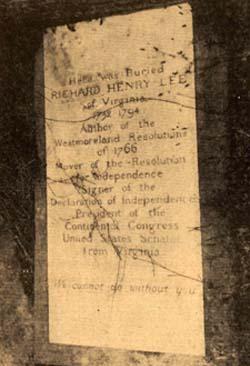 Here was Buried
RICHARD HENRY LEE
of Virginia
1732 1794
Author of the
Westmoreland Resolutions
of 1766
Mover of the Resolution
for Independence
Signer of the
Declaration of Independence
President of the
Continental Congress
United States Senator
from Virginia
We cannot do without you